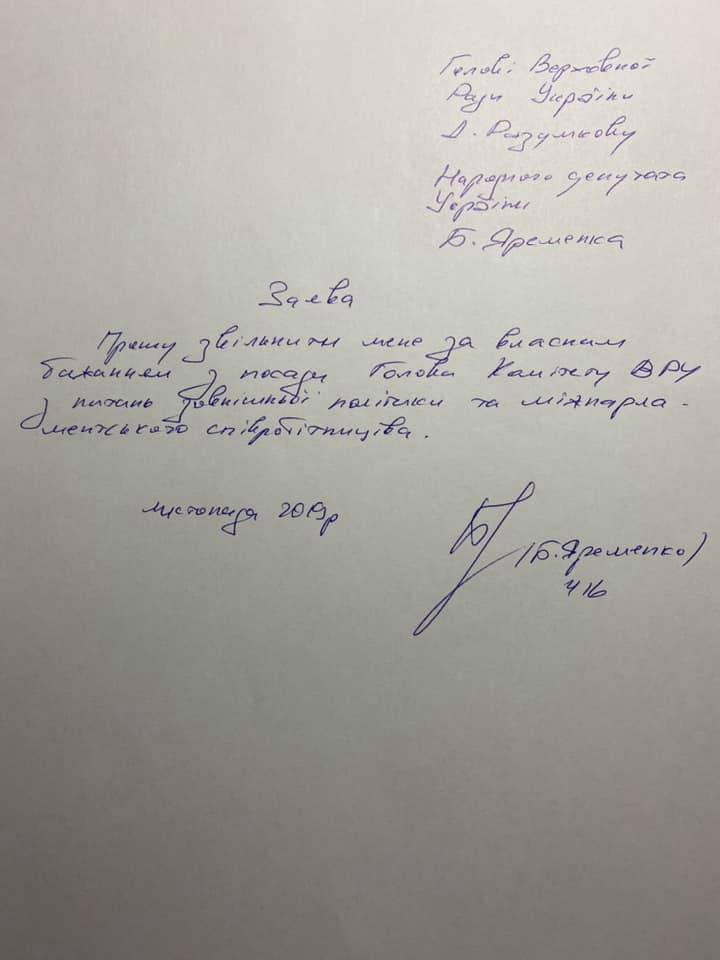 Голові Верховної
Ради України
Д. Разумкову
Народного депутата
України
Б. Яременка
Заява
Прошу звільнити мене за власним
бажанням з посади Голова Комітету ВРУ
з питань зовнішньої політики та міжпарла-
ментського співробітництва.
листопада 2019р
(Б. Яременко)
416